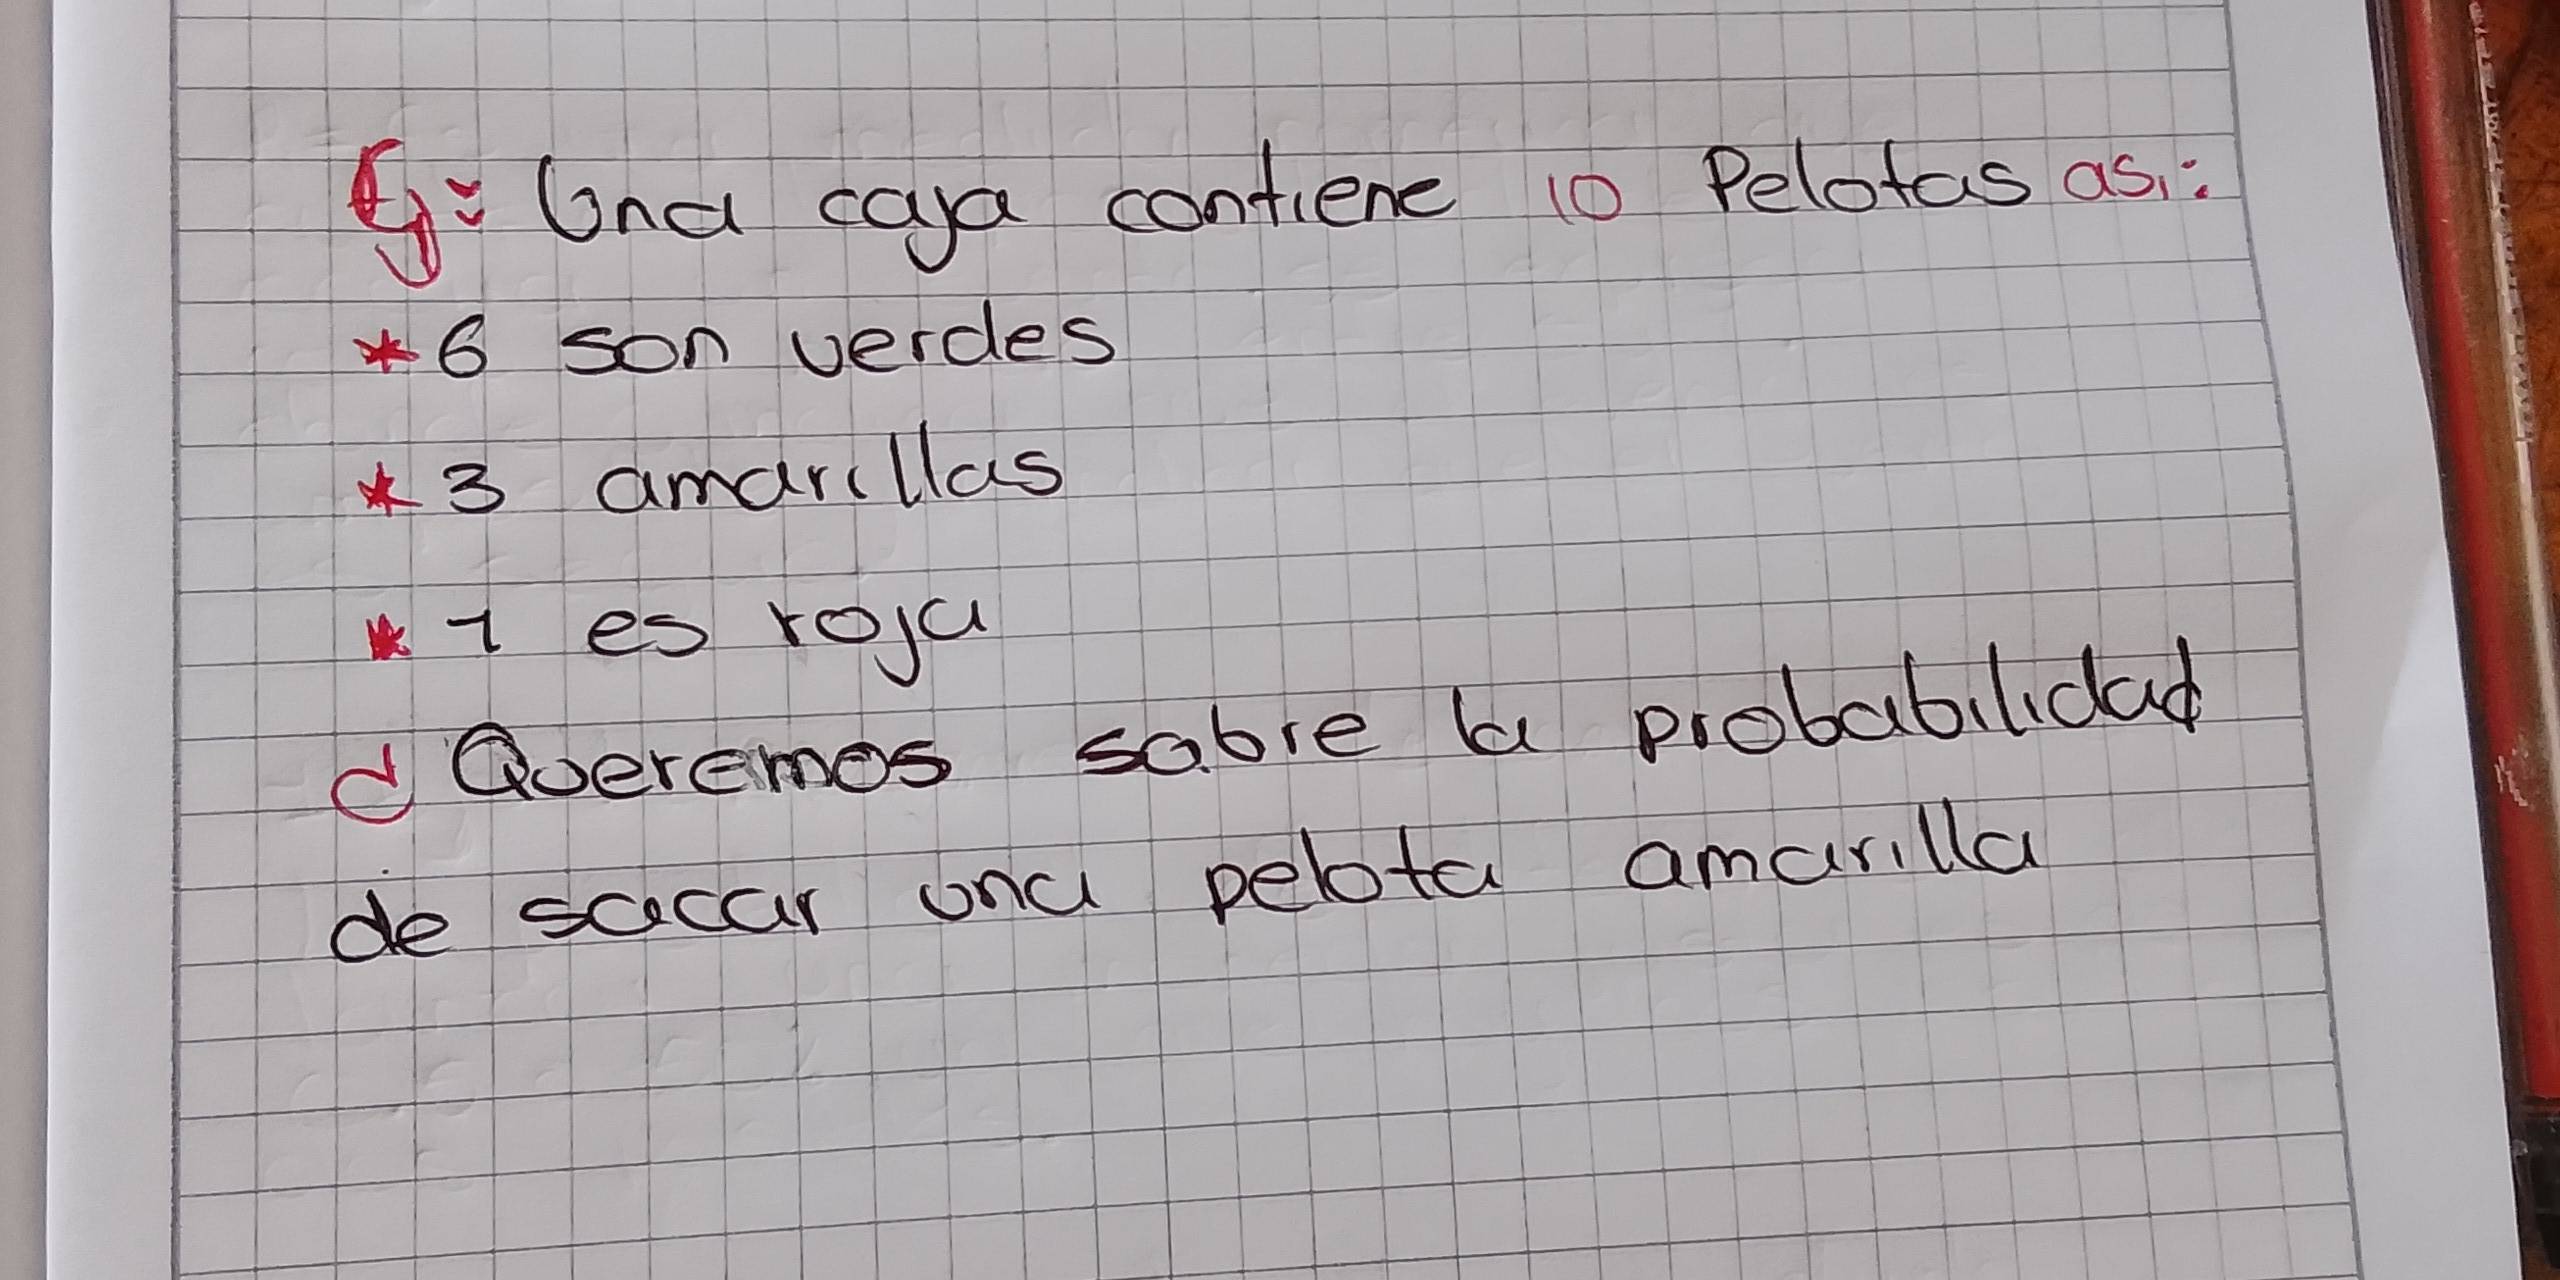 Ej: Una caja contiene 10 Pelotas asi:
* 6 son verdes
* 3 amarillas
* 1 es roja
d Queremos sabre la probabilidad
de sacar una pelota amarilla